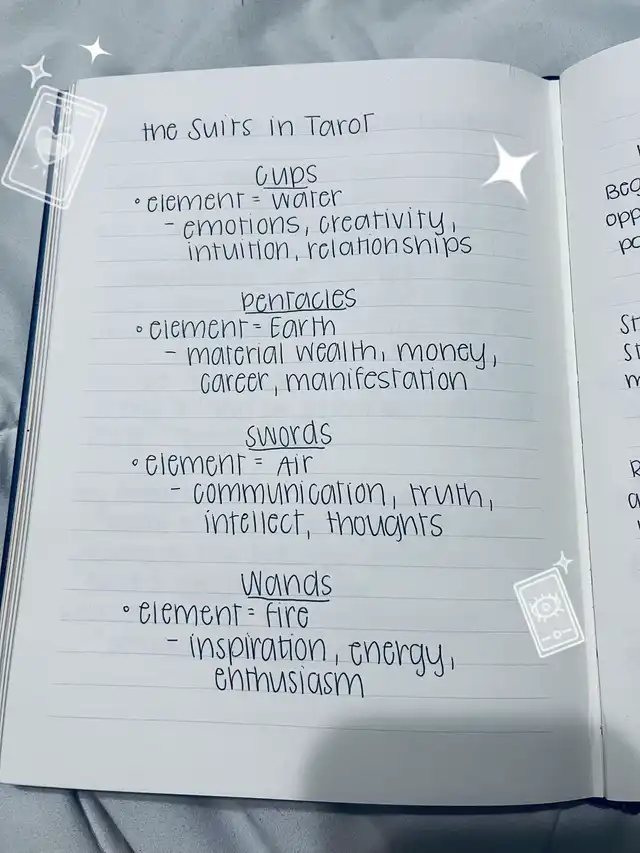 the Suits in Tarot
Cups
• element = Water
- emotions, creativity,
intuition, relationships
Pentacles
• element = Earth
- material wealth, money,
career, manifestation
Swords
• element = Air
- communication, truth,
intellect, thoughts
Wands
• element = Fire
- inspiration, energy,
enthusiasm